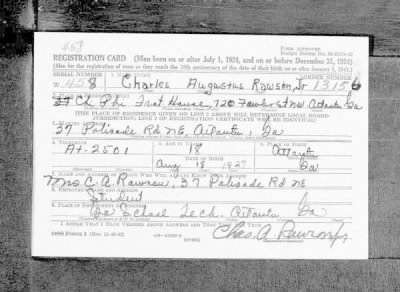 458
REGISTRATION CARD (Men born on or after July 1, 1924, and on or before December 31, 1924)
(Also for the registration of men as they reach the 18th anniversary of the date of their birth on or after January 1, 1925.)
SERIAL NUMBER ORDER NUMBER
W 458 Charles Augustus Rawson Jr 13156
Chi Phi Frat House, 720 Fowler St NW Atlanta Ga
(THE PLACE OF RESIDENCE GIVEN ON LINE 2 ABOVE WILL DETERMINE LOCAL BOARD
JURISDICTION; LINE 2 OF REGISTRATION CERTIFICATE WILL BE IDENTICAL)
37 Palisade Rd NE, Atlanta, Ga
At-2501 18 Atlanta
DATE OF BIRTH
Aug 18 1927 Ga
Mrs C. A. Rawson, 37 Palisade Rd NE
Student
Ga School Tech. Atlanta Ga
I AFFIRM THAT I HAVE VERIFIED ABOVE ANSWERS AND THAT THEY ARE TRUE.
Chas. A. Rawson Jr.